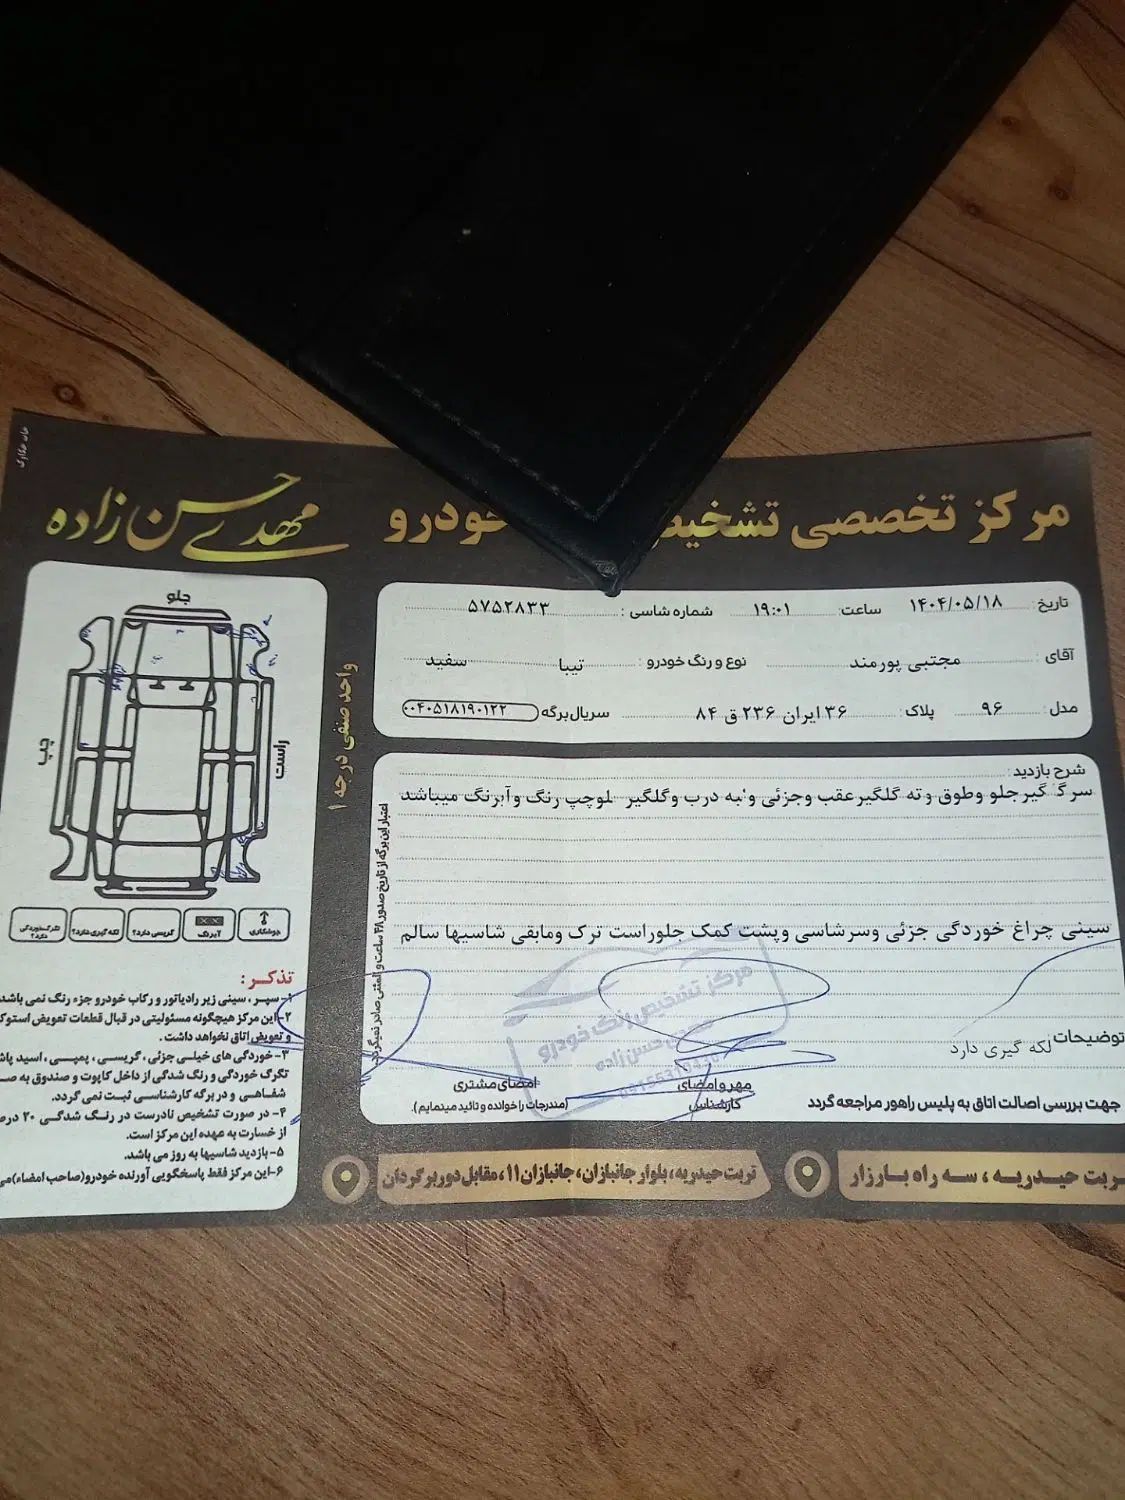 مرکز تخصصی تشخیص خودرو
مهدی حسن زاده
تاریخ: ۱۴۰۴/۰۵/۱۸ ساعت: ۱۹:۰۱ شماره شاسی: ۵۷۵۲۸۳۳
آقای: مجتبی پورمند نوع و رنگ خودرو: تیبا سفید
مدل: ۹۶ پلاک: ۳۶ ایران ۲۳۶ ق ۸۴ سریال برگه ۰۰۴۰۵۱۸۱۹۰۱۲۲
شرح بازدید:
گیرجلو وطوق و ته گلگیرعقب وجزئی درب وگلگیر رنگ وآبرنگ میباشد
سینی چراغ خوردگی جزئی وسرشاسی وپشت کمک جلوراست ترک ومابقی شاسیها سالم
توضیحات لکه گیری دارد
مهر و امضای کارشناس
امضای مشتری
(مندرجات را خوانده و تائید مینمایم).
جهت بررسی اصالت اتاق به پلیس راهور مراجعه گردد
مرکز تشخیص رنگ خودرو
حسن زاده
اعتبار این برگه از تاریخ صدور ۴۸ ساعت و المثنی صادر نمیگردد
واحد صنفی درجه ۱
جلو
چپ
راست
جوشکاری
آبرنگ
گریسی دارد؟
لکه گیری دارد؟
تگرگ خوردگی دارد؟
تذکر:
۱- سپر، سینی زیر رادیاتور و رکاب خودرو جزء رنگ نمی باشد
۲- این مرکز هیچگونه مسئولیتی در قبال قطعات تعویض استوک
و تعویض اتاق نخواهد داشت.
۳- خوردگی های خیلی جزئی، گریسی، پمپی، اسید پاش
تگرگ خوردگی و رنگ شدگی از داخل کاپوت و صندوق به صـ
شفاهی و در برگه کارشناسی ثبت نمی گردد.
۴- در صورت تشخیص نادرست در رنگ شدگی ۲۰ درص
از خسارت به عهده این مرکز است.
۵- بازدید شاسیها به روز می باشد.
۶- این مرکز فقط پاسخگویی آورنده خودرو(صاحب امضاء)می
تربت حیدریه، بلوار جانبازان، جانبازان ۱۱، مقابل دوربرگردان
ربت حیدریه، سه راه بارزار